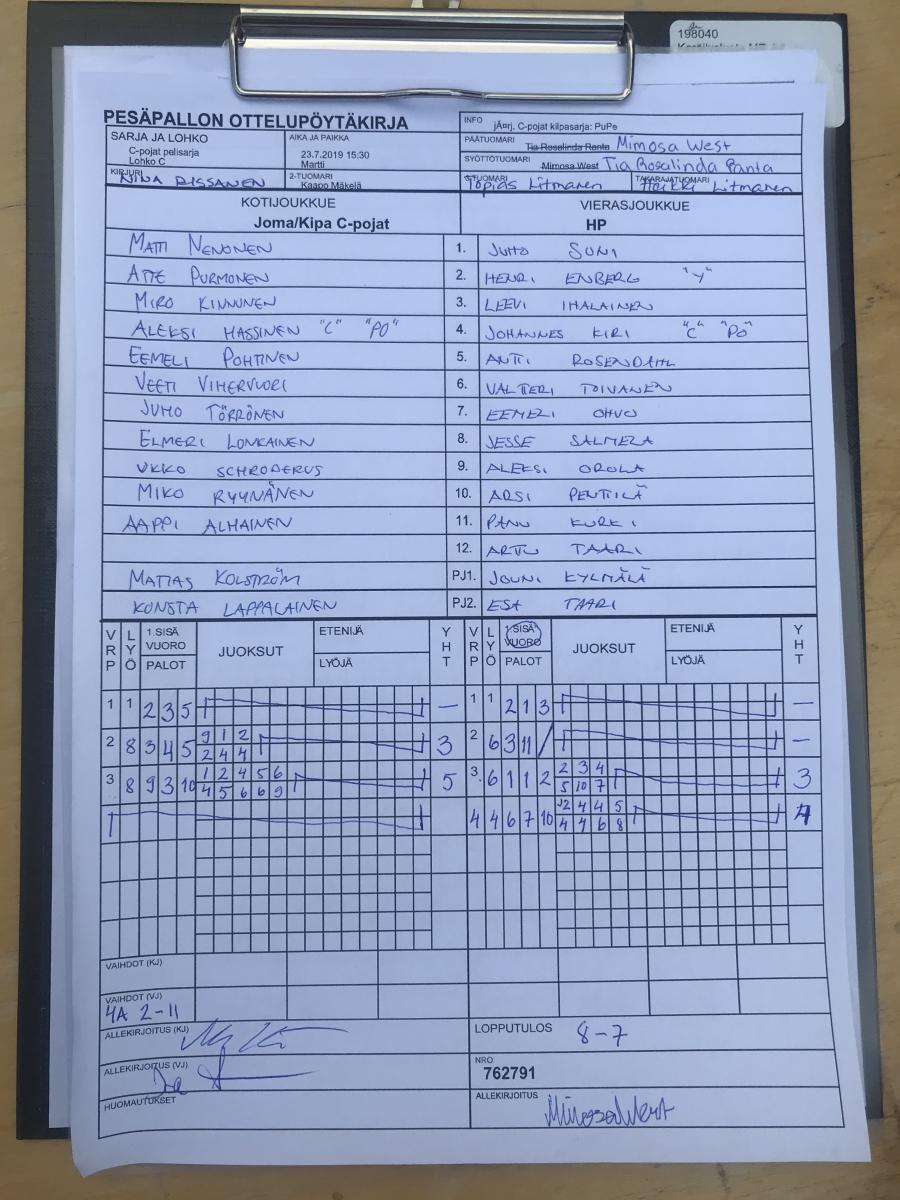 198040
PESÄPALLON OTTELUPÖYTÄKIRJA
INFO jÄ¤rj. C-pojat kilpasarja: PuPe
SARJA JA LOHKO
C-pojat pelisarja
Lohko C
AIKA JA PAIKKA
23.7.2019 15:30
Martti
PÄÄTUOMARI Tia Rosalinda Ranta Mimosa West
SYÖTTÖTUOMARI Mimosa West Tia Rosalinda Ranta
KIRJURI NINA RISSANEN
2-TUOMARI Kaapo Mäkelä
Topias Litmanen
TAKARAJATUOMARI Heikki Litmanen
KOTIJOUKKUE VIERASJOUKKUE
Joma/Kipa C-pojat HP
MATTI NENONEN 1. JUHO SUNI
ATTE PURMONEN 2. HENRI ENBERG "Y"
MIRO KINNUNEN 3. LEEVI IHALAINEN
ALEKSI HASSINEN "C" "PO" 4. JOHANNES KIRI "C" "PO"
EEMELI POHTINEN 5. ANTTI ROSENDAHL
VEETI VIHERVUORI 6. VALTTERI TOIVANEN
JUHO TÖRRÖNEN 7. EEMELI OHVO
ELMERI LONKAINEN 8. JESSE SALMELA
UKKO SCHRODERUS 9. ALEKSI OROLA
MIKO RYYNÄNEN 10. ARSI PENTTILÄ
AAPPI ALHAINEN 11. PANU KURKI
12. ARTTU TAARI
MATIAS KOLSTRÖM PJ1. JOUNI KYLMÄLÄ
KONSTA LAPPALAINEN PJ2. ESA TAARI
VRP LYÖ 1.SISÄ VUORO PALOT JUOKSUT ETENIJÄ LYÖJÄ YHT VRP LYÖ 1.SISÄ VUORO PALOT JUOKSUT ETENIJÄ LYÖJÄ YHT
1 1 2 3 5 — 1 1 2 1 3 —
2 8 3 4 5 9 1 2 3 2 6 3 11 / —
2 4 4
3 8 9 3 10 1 2 4 5 6 5 3. 6 1 1 2 2 3 4 3
4 5 6 6 9 5 10 7
4 4 6 7 10 12 4 4 5 4
4 4 6 8
VAIHDOT (KJ)
VAIHDOT (VJ)
4A 2-11
ALLEKIRJOITUS (KJ) LOPPUTULOS 8-7
ALLEKIRJOITUS (VJ) NRO
762791
HUOMAUTUKSET ALLEKIRJOITUS Mimosa West